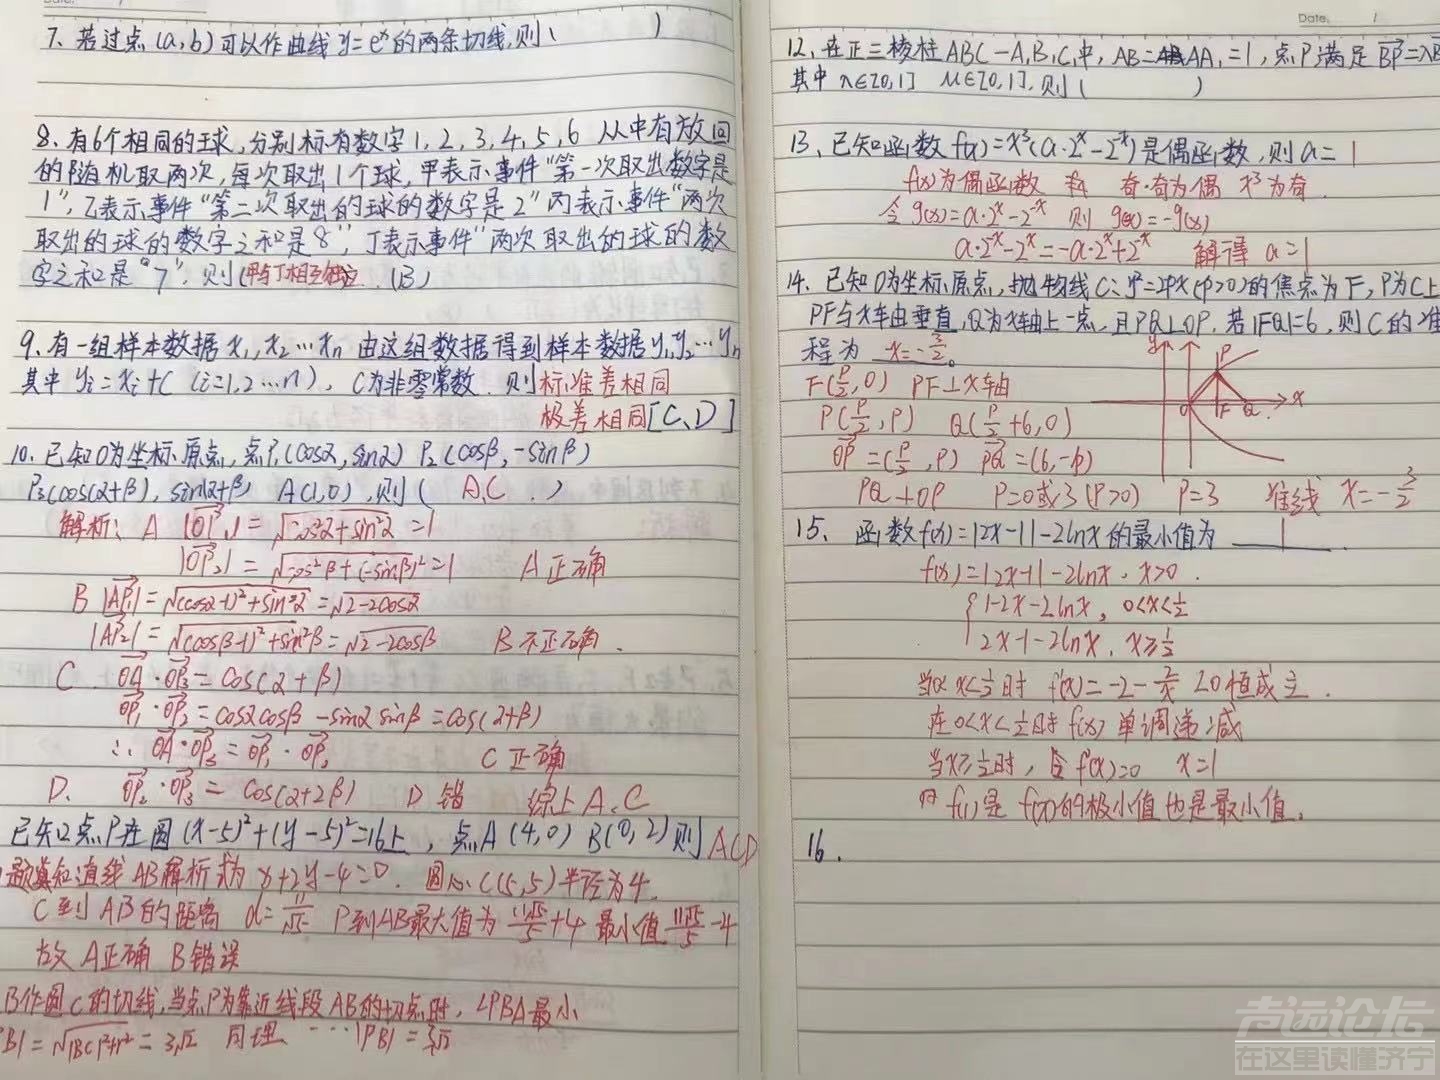 Date. /
7、若过点(a,b)可以作曲线y=eˣ的两条切线,则( )
8、有6个相同的球,分别标有数字1,2,3,4,5,6 从中有放回
的随机取两次,每次取出1个球,甲表示事件"第一次取出数字是
1",乙表示事件"第二次取出的球的数字是2"丙表示事件"两次
取出的球的数字之和是8",丁表示事件"两次取出的球的数
字之和是"7",则(甲与丁相互独立.(B)
9、有一组样本数据x₁,x₂…xₙ由这组数据得到样本数据y₁,y₂…yₙ
其中yᵢ=xᵢ+c(i=1,2…n),C为非零常数.则标准差相同
极差相同[C、D]
10、已知O为坐标原点,点P₁(cosα,sinα) P₂(cosβ,-sinβ)
P₃(cos(α+β),sin(α+β) A(1,0),则( A,C .)
解析: A |OP₁|=√cos²α+sin²α=1
|OP₂|=√cos²β+(-sinβ)²=1 A正确
B |AP₁|=√(cosα-1)²+sin²α=√2-2cosα
|AP₂|=√(cosβ-1)²+sin²β=√2-2cosβ B不正确.
C. OA·OP₃=cos(α+β)
OP₁·OP₂=cosαcosβ-sinαsinβ=cos(α+β)
∴ OA·OP₃=OP₁·OP₂ C正确
D. OP₂·OP₃=cos(α+2β) D错 综上A、C
已知点P在圆(x-5)²+(y-5)²=16上,点A(4,0) B(0,2)则ACD
易知直线AB解析式为x+2y-4=0. 圆心C(5,5)半径为4.
C到AB的距离 d=11/√5 P到AB最大值为11√5/5+4 最小值11√5/5-4
故A正确 B错误
B作圆C的切线,当点P为靠近线段AB的切点时,∠PBA最小
PB|=√|BC|²+r²=3√2 同理 …|PB|=3√2
Date. /
12、在正三棱柱ABC-A₁B₁C₁中,AB=AA₁=1,点P满足BP=λB
其中λ∈[0,1] μ∈[0,1],则( )
13、已知函数f(x)=x³(a·2ˣ-2⁻ˣ)是偶函数,则a=1
f(x)为偶函数 奇·奇为偶 x³为奇.
令g(x)=a·2ˣ-2⁻ˣ 则 g(x)=-g(x)
a·2⁻ˣ-2ˣ=-a·2ˣ+2⁻ˣ 解得a=1
14、已知O为坐标原点,抛物线C:y²=2px(p>0)的焦点为F,P为C上
PF与x轴垂直,Q为x轴上一点,且PQ⊥OP,若|FQ|=6,则C的准
程为 x=-3/2。
F(p/2,0) PF⊥x轴
P(p/2,p) Q(p/2+6,0)
OP=(p/2,p) PQ=(6,-p)
PQ⊥OP P=0或3(P>0) P=3 准线 x=-3/2
y P O F Q x
15、函数f(x)=|2x-1|-2lnx的最小值为 1.
f(x)=|2x-1|-2lnx.x>0.
{1-2x-2lnx, 0<x<1/2
2x-1-2lnx, x≥1/2
当0<x<1/2时 f'(x)=-2-2/x<0恒成立.
在0<x<1/2时f(x)单调递减
当x≥1/2时,令f'(x)=0 x=1
f(1)是f(x)的极小值也是最小值.
16.
志远论坛
在这里读懂济宁